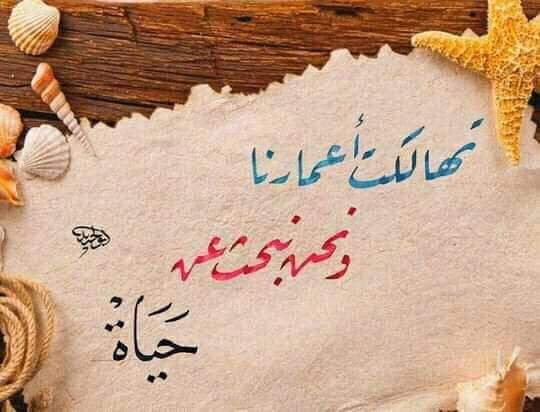 تهالكت أعمارنا
ونحن نبحث عن
حَيَاةْ